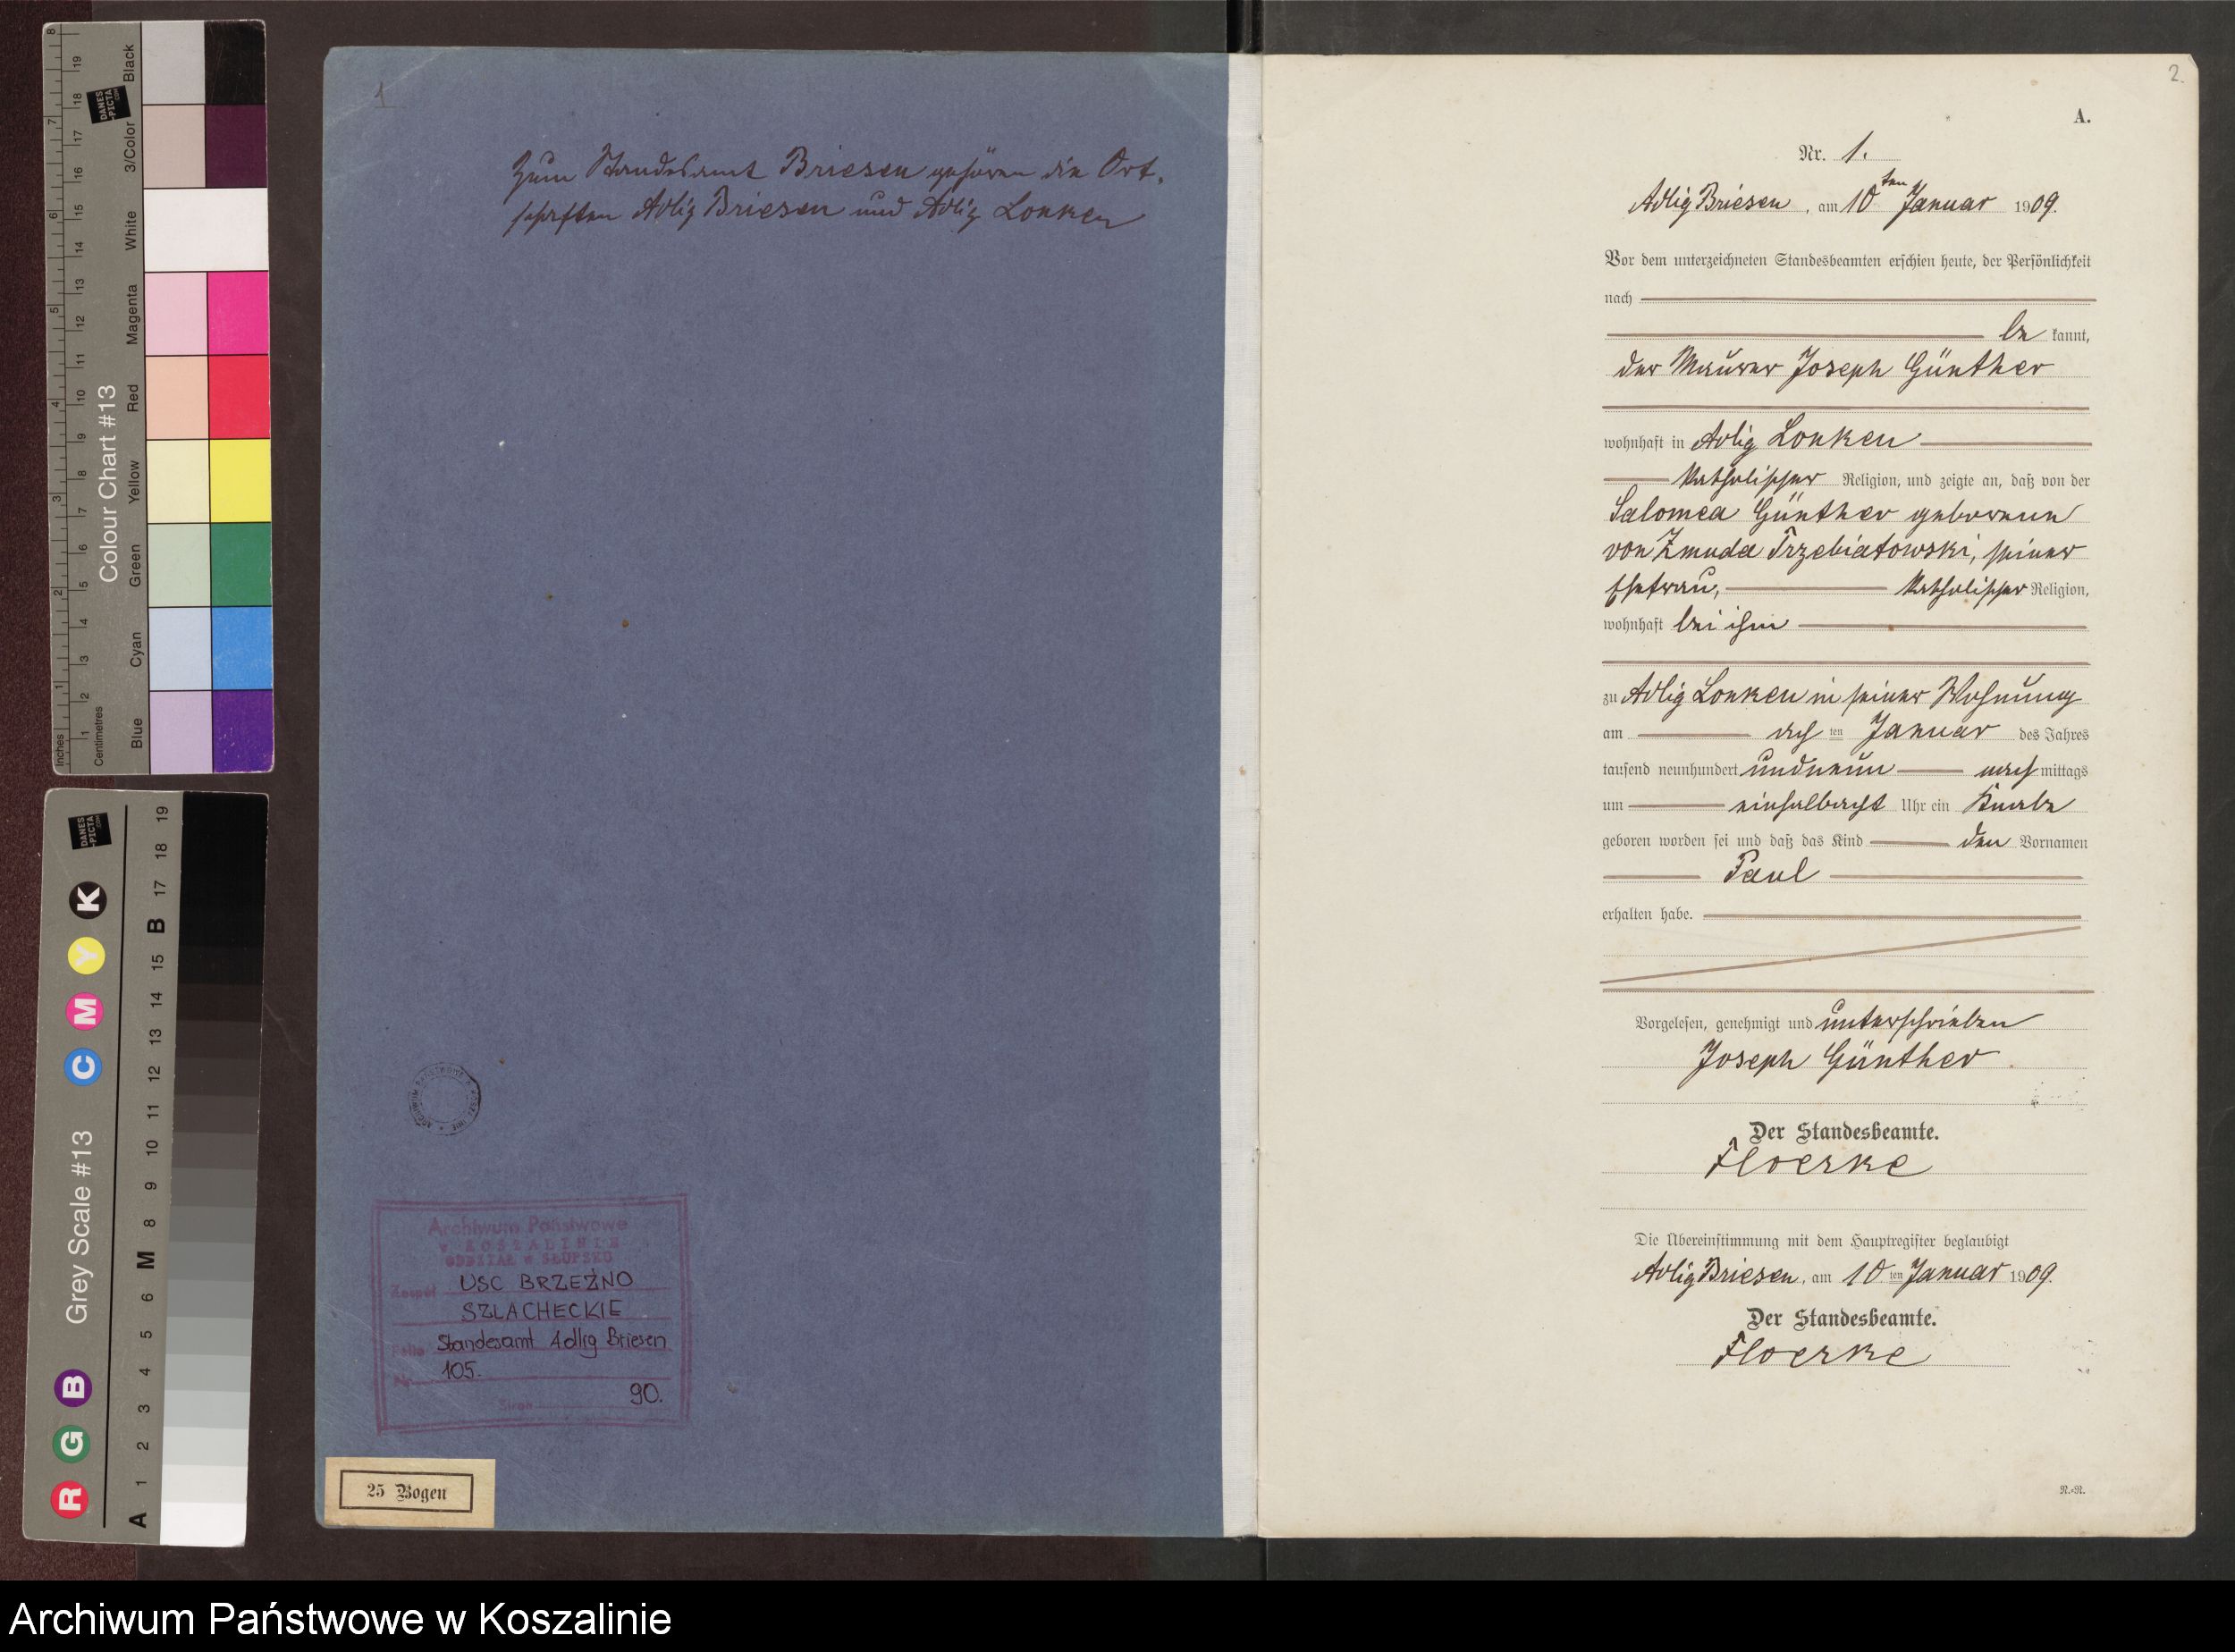 1
Zum Standesamt Briesen gehören die Ort-
schaften Adlig Briesen und Adlig Lonken
Archiwum Państwowe
w KOSZALINIE
ODDZIAŁ w SŁUPSKU
Zespół USC BRZEŹNO
SZLACHECKIE
Standesamt Adlig Briesen
Nr 105.
Stron 90.
25 Bogen
2.
A.
Nr. 1.
Adlig Briesen, am 10ten Januar 1909.
Vor dem unterzeichneten Standesbeamten erschien heute, der Persönlichkeit
nach
be kannt,
der Maurer Joseph Günther
wohnhaft in Adlig Lonken
katholischer Religion, und zeigte an, daß von der
Salomea Günther geborenen
von Zmuda Trzebiatowski, seiner
Ehefrau, katholischer Religion,
wohnhaft bei ihm
zu Adlig Lonken in seiner Wohnung
am ten Januar des Jahres
tausend neunhundert undneun nach mittags
um einhalbacht Uhr ein Knabe
geboren worden sei und daß das Kind den Vornamen
Paul
erhalten habe.
Vorgelesen, genehmigt und unterschrieben
Joseph Günther
Der Standesbeamte.
Floerke
Die Übereinstimmung mit dem Hauptregister beglaubigt
Adlig Briesen, am 10 ten Januar 1909.
Der Standesbeamte.
Floerke
R.-R.
Colour Chart #13
Inches
Centimetres
Blue
Cyan
Green
Yellow
Red
Magenta
White
3/Color
Black
DANES
-PICTA
.COM
Grey Scale #13
R G B C M Y K
A 1 2 3 4 5 6 M 8 9 10 11 12 13 14 15 B 17 18 19
DANES
-PICTA
.COM
Archiwum Państwowe w Koszalinie